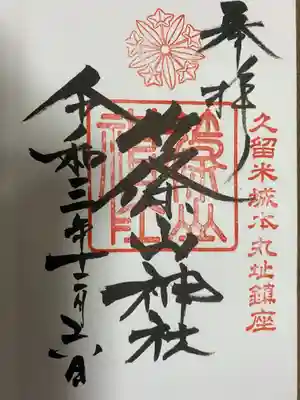 奉拝
久留米城本丸址鎮座
篠山神社
篠山神社
令和三年十二月六日